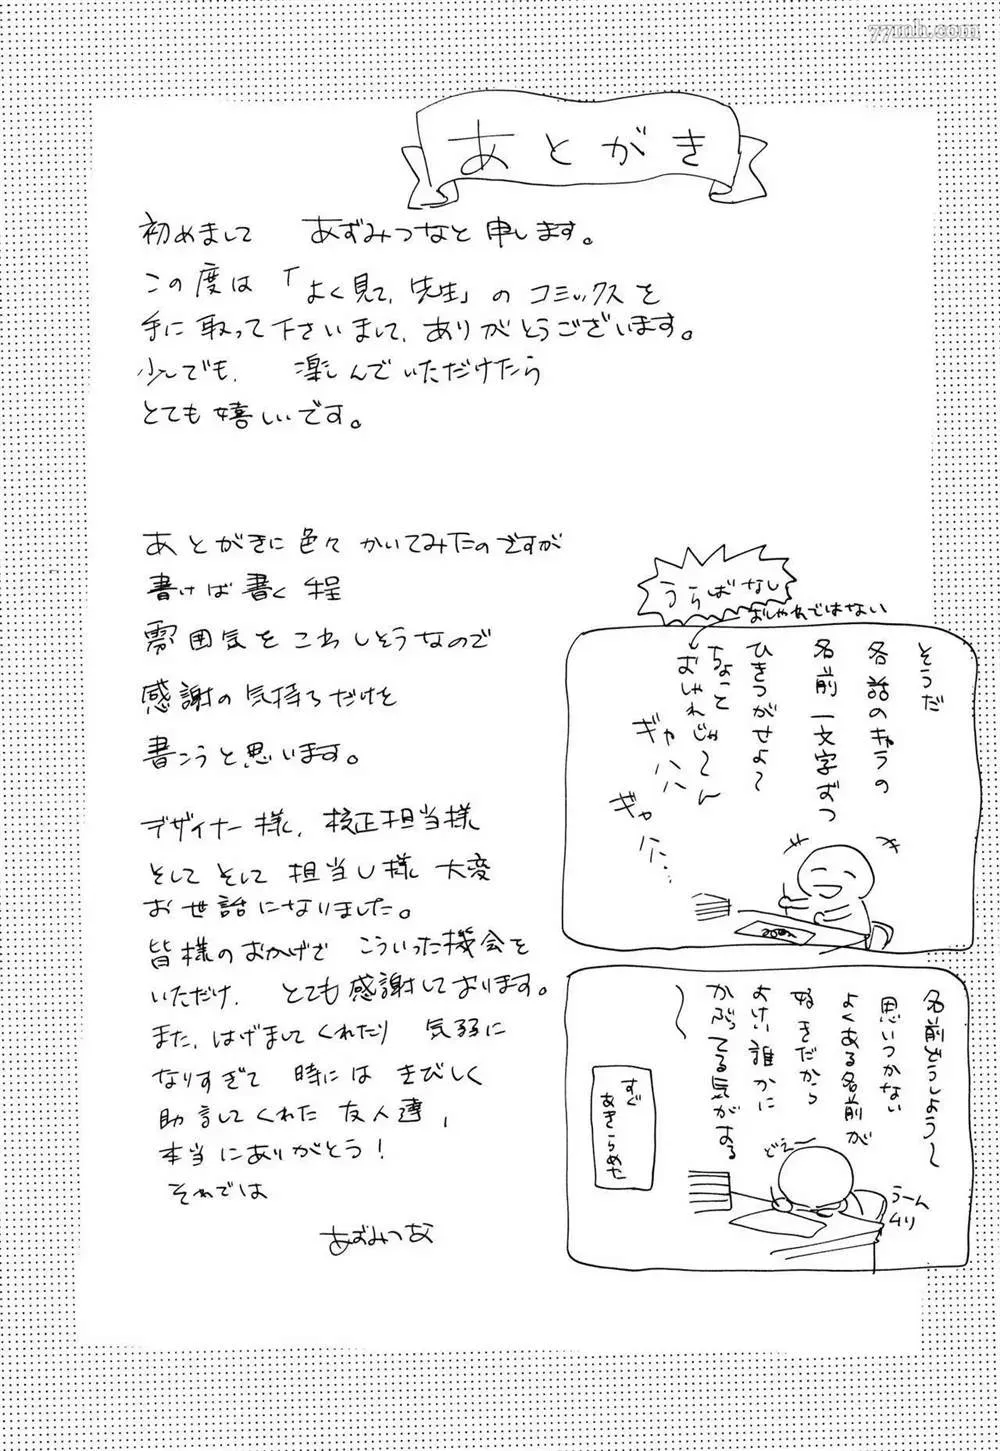 77mh.com
あとがき
初めまして あずみつなと申します。
この度は「よく見て、先生」のコミックスを
手に取って下さいまして、ありがとうございます。
少しでも、楽しんでいただけたら
とても嬉しいです。
あとがきに色々かいてみたのですが
書けば書く程
雰囲気をこわしそうなので
感謝の気持ちだけを
書こうと思います。
デザイナー様、校正担当様
そして そして 担当し様 大変
お世話になりました。
皆様のおかげで こういった機会を
いただけ、とても感謝しております。
また、はげましてくれたり 気弱に
なりすぎて 時には きびしく
助言してくれた 友人達、
本当にありがとう!
それでは
あずみつな
うらばなし
おしゃれではない
そうだ
各話のキャラの
名前 一文字ずつ
ひきつがせよ〜
ちょっと
おしゃれじゃ〜ん
ギャハハハ
ギャハハ…
名前どうしよう〜
思いつかない
よくある名前が
好きだから
よけい誰かに
かぶってる気がする
〜
すぐ
あきらめた
どえ〜
うーん
ムリ